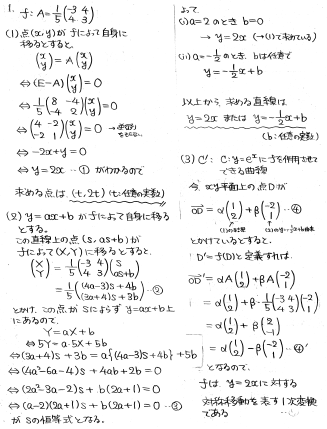 1. f: A = 1/5 (-3 4 / 4 3)
(1) 点(x,y)が fによって自身に
移るとすると、
(x / y) = A (x / y)
⇔ (E-A)(x / y) = 0
⇔ 1/5 (8 -4 / -4 2)(x / y) = 0
⇔ (4 -2 / -2 1)(x / y) = 0
⇔ -2x+y = 0
⇔ y = 2x …① がわかるので
求める点は (t, 2t) (t:任意の実数)
(2) y = ax+b が fによって自身に移る
とする。
この直線上の点 (s, as+b) が
fによって (X, Y) に移るとすると、
(X / Y) = 1/5 (-3 4 / 4 3)(s / as+b)
= 1/5 ((4a-3)s+4b / (3a+4)s+3b) …②
とかけ、この点が sによらず y=ax+b上
にあるので、
Y = aX + b
⇔ 5Y = a·5X + 5b
⇔ (3a+4)s + 3b = a{(4a-3)s+4b} + 5b
⇔ (4a²-6a-4)s + 4ab + 2b = 0
⇔ (2a²-3a-2)s + b(2a+1) = 0
⇔ (a-2)(2a+1)s + b(2a+1) = 0 …③
が sの恒等式となる。
よって
(i) a=2 のとき b=0
→ y=2x (→(1)で求めている)
(ii) a=-1/2 のとき、bは任意で
y = -1/2 x + b
以上から、求める直線は
y=2x または y=-1/2 x+b
(b:任意の実数)
(3) C': C: y=eˣ に fを作用させて
できる曲線
⇔ xy平面上の点Dが
OD = α(1 / 2) + β(-2 / 1) …④
とかけているとすると、
D' = f(D) と定義すれば、
OD' = αA(1 / 2) + βA(-2 / 1)
= α(1 / 2) + β·1/5 (-3 4 / 4 3)(-2 / 1)
= α(1 / 2) + β(2 / -1)
= α(1 / 2) - β(-2 / 1) …④'
となるので、
fは、y=2xに対する
対称移動を表す1次変換
である